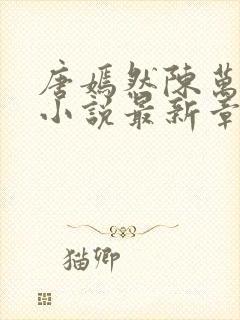 唐嫣然陳萬
小說最新章
猫卿